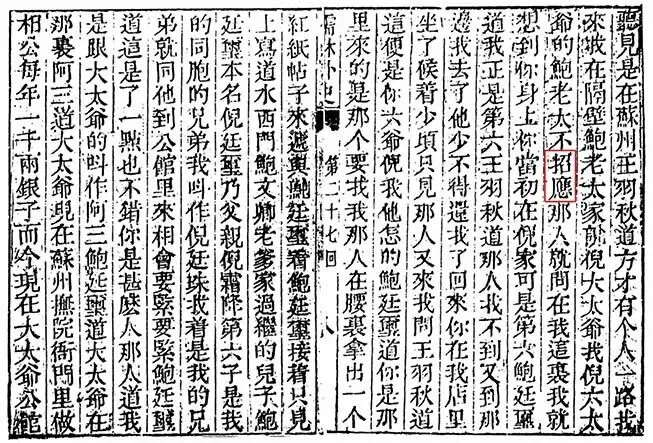 聽見是在蘇州王羽秋道方才有个人一路找
來找在隔壁鮑老太家說倪大太爺找倪六太
爺的鮑老太不招應那人就問在我這裏我就
想到你身上你當初在倪家可是第六鮑廷璽
道我正是第六王羽秋道那人找不到又到那
邊找去了他少不得還找了回來你在我店里
坐了候着少頃只見那人又來找問王羽秋道
這便是你六爺倪找他怎的鮑廷璽道你是那
里來的是那个要找我那人在腰裏拿出一个
儒林外史 第二十七回 八
紅紙帖子來遞與鮑廷璽看鮑廷璽接着只見
上寫道水西門鮑文卿老爹家過繼的兒子鮑
廷璽本名倪廷璽乃父親倪霜峰第六子是我
的同胞的兄弟我叫作倪廷珠找着是我的兄
弟就同他到公館里來相會要緊要緊鮑廷璽
道這是了一點也不錯你是甚麽人那人道我
是跟大太爺的叫作阿三鮑廷璽道大太爺在
那裏阿三道大太爺現在蘇州撫院衙門里做
相公每年一千兩銀子而今現在大太爺公館